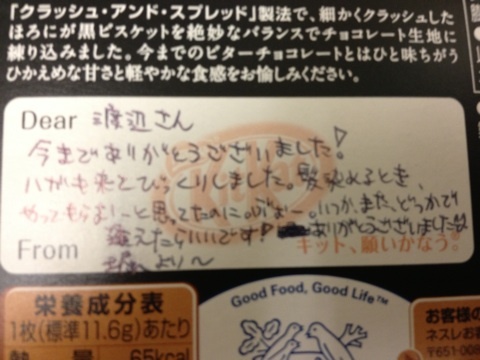 「クラッシュ・アンド・スプレッド」製法で、細かくクラッシュした
ほろにが黒ビスケットを絶妙なバランスでチョコレート生地に
練り込みました。今までのビターチョコレートとはひと味ちがう
ひかえめな甘さと軽やかな食感をお愉しみください。
Dear 渡辺さん
今までありがとうございました!
ハガキ来てびっくりしました。髪染めるとき、
やってもらおーと思ってたのに。ぶぅー。いつか、また、どっかで
逢えたらいいです! ありがとうございました
From より〜
キット、願いかなう。
栄養成分表
1枚(標準11.6g)あたり
熱量 65kcal
Good Food, Good Life™
お客様の
ネスレお客
〒651-008